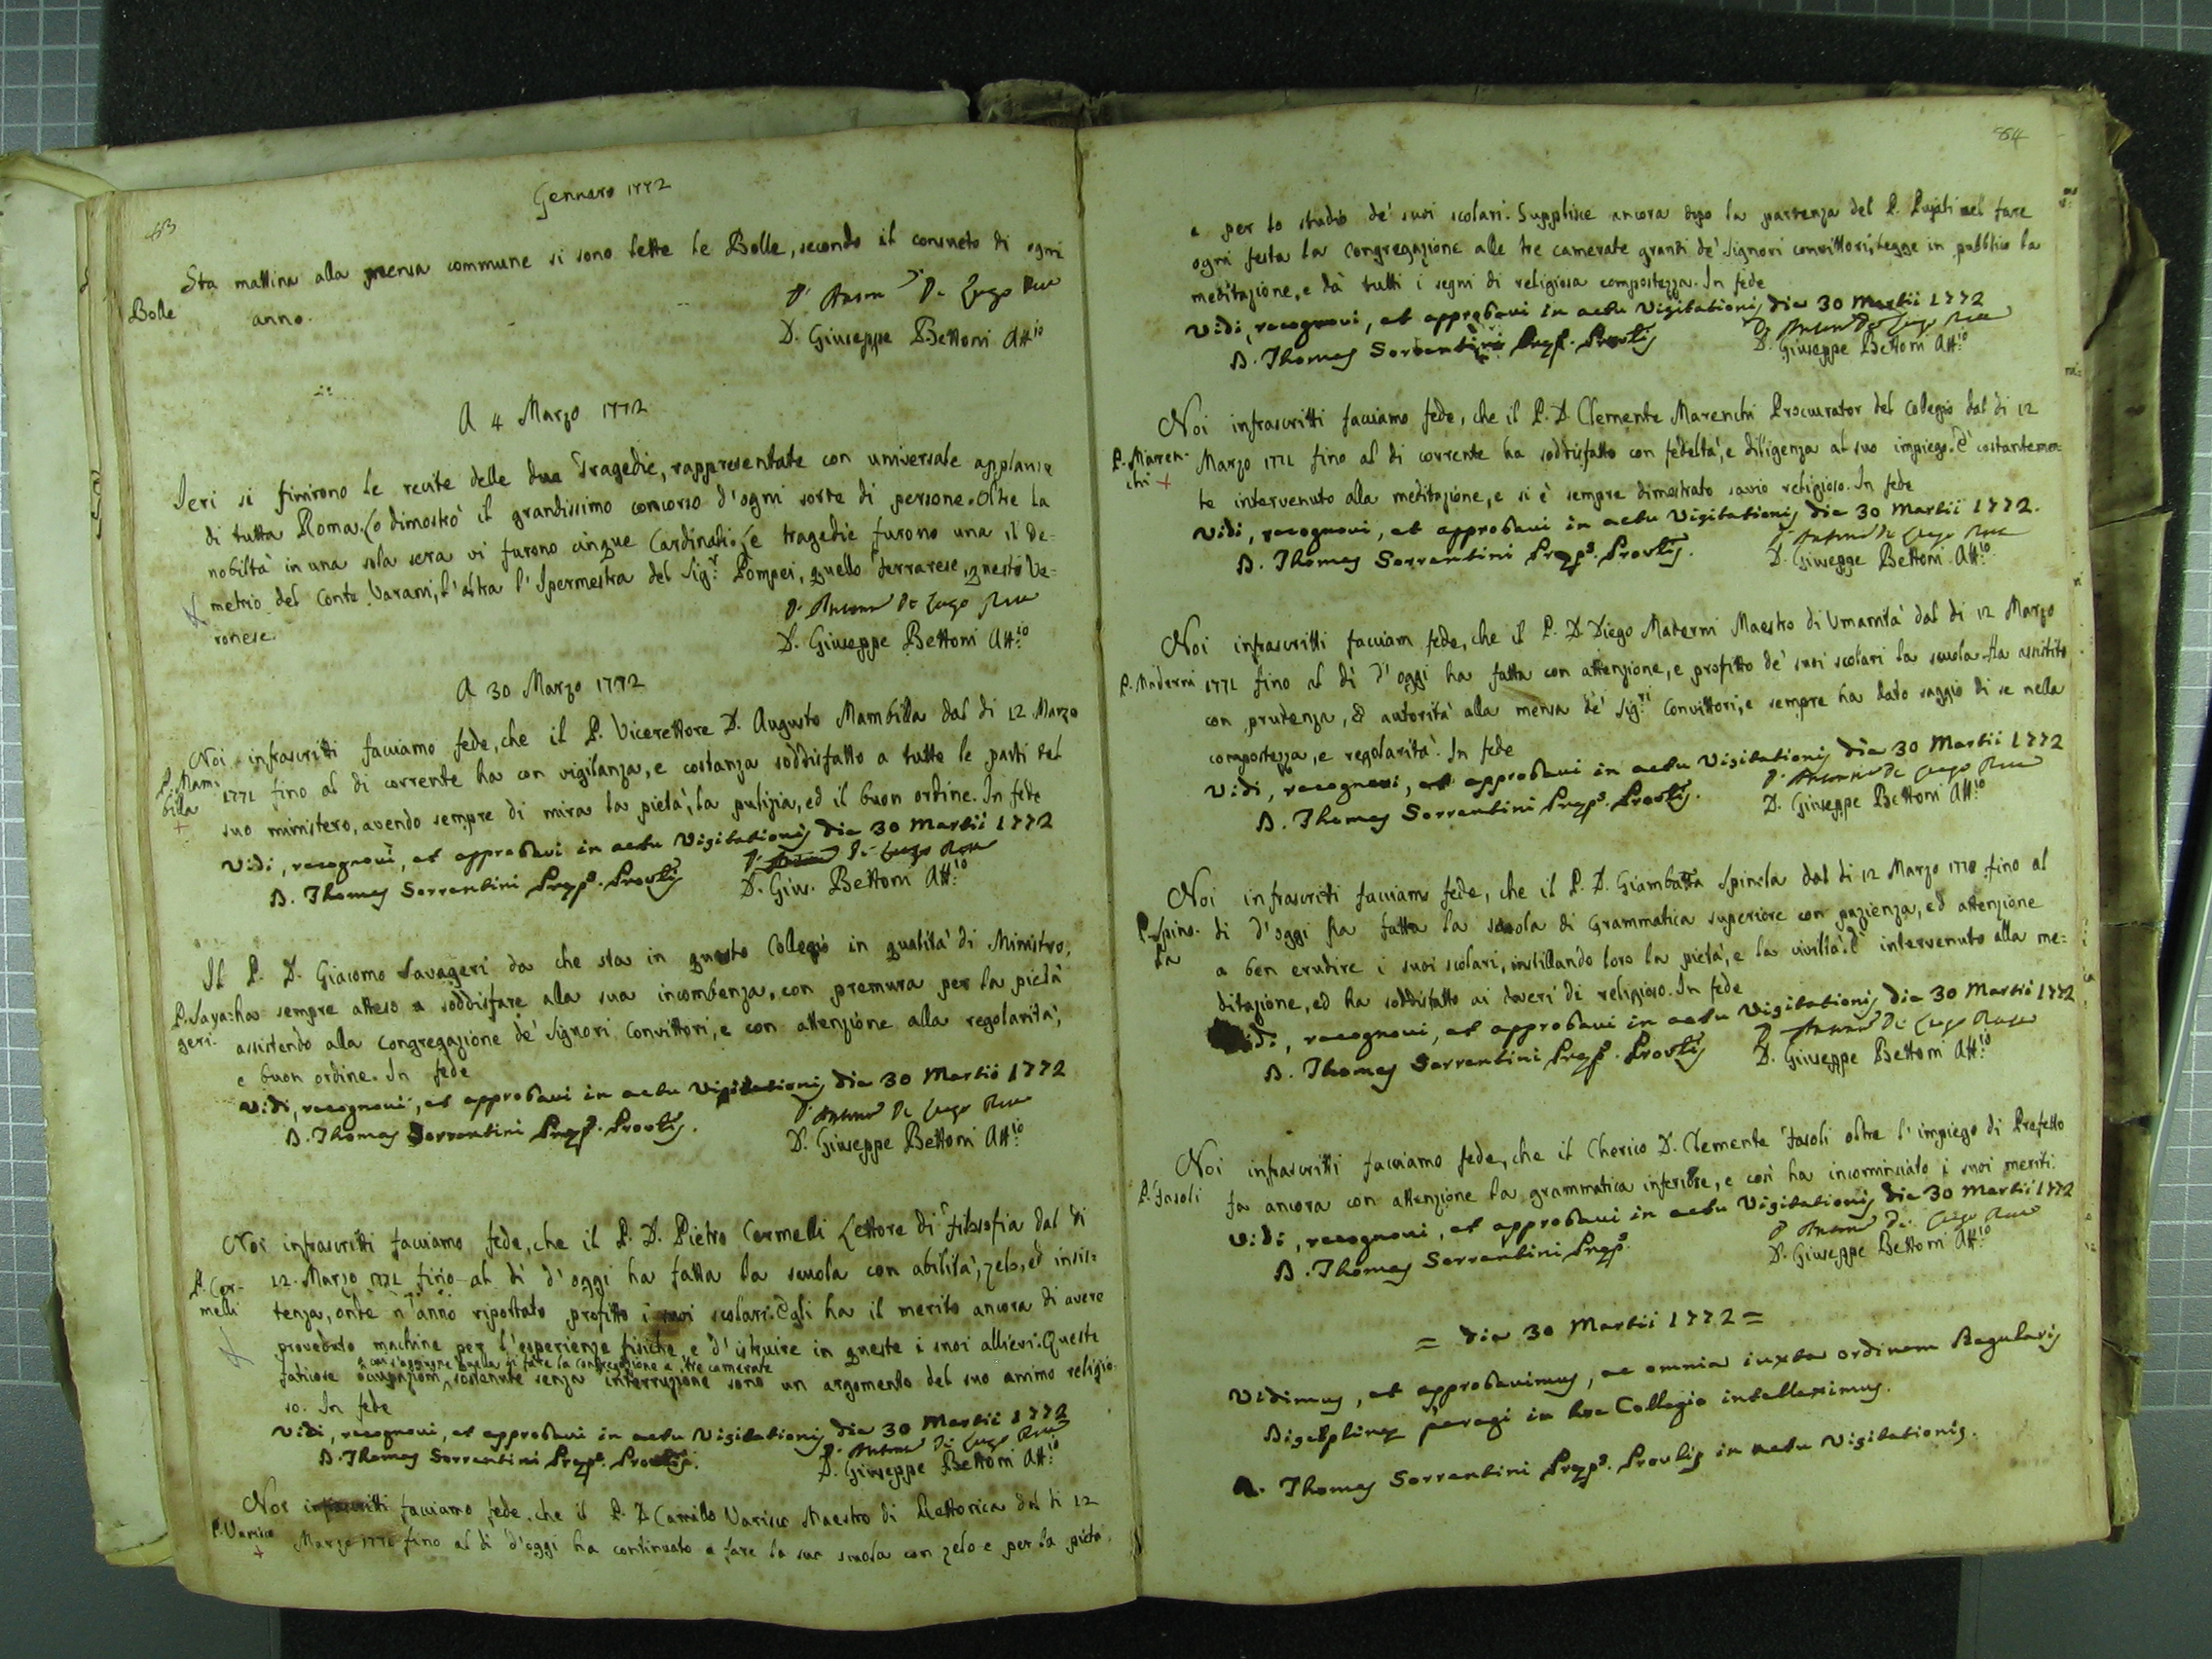 63
Gennaro 1772
Sta mattina alla mensa commune si sono lette le Bolle, secondo il consueto di ogni
Bolle
anno.
D. Anton De Lugo
D. Giuseppe Bettoni Att.io
A 4 Marzo 1772
Ieri si finirono le recite delle due Tragedie, rappresentate con universale applauso
di tutta Roma. Lo dimostrò il grandissimo concorso d'ogni sorte di persone. Oltre la
nobiltà in una sola sera vi furono cinque Cardinali. Le tragedie furono una il De-
metrio del Conte Varani, l'altra l'Ipermestra del Sig.r Pompei, quello ferrarese, questo Ve-
ronese.
D. Antonio De Lugo
D. Giuseppe Bettoni Att.io
A 30 Marzo 1772
Noi infrascritti facciamo fede, che il P. Vicerettore D. Augusto Mambilla dal di 12 Marzo
P. Mam-
billa
+
1771 fino al di corrente ha con vigilanza, e costanza soddisfatto a tutte le parti del
suo ministero, avendo sempre di mira la pietà, la pulizia, ed il buon ordine. In fede
Vidi, recognovi, et approbavi in actu Visitationis die 30 Martii 1772
D. Thomas Sorrentini Prep.s Provlis
D. Antonio De Lugo
D. Gius. Bettoni Att.io
Il P. D. Giacomo Savageri da che sta in questo Collegio in qualità di Ministro,
P. Sava=
geri.
ha sempre atteso a soddisfare alla sua incombenza, con premura per la pietà
assistendo alla congregazione de' Signori Convittori, e con attenzione alla regolarità,
e buon ordine. In fede
Vidi, recognovi, et approbavi in actu Visitationis die 30 Martii 1772
D. Thomas Sorrentini Prep.s Provlis.
D. Antonio De Lugo
D. Giuseppe Bettoni Att.io
Noi infrascritti facciamo fede, che il P. D. Pietro Cermelli Lettore di Filosofia dal di
P. Cer-
melli
12 Marzo 1771 fino al dì d'oggi ha fatta la scuola con abilità, zelo, ed insis=
tenza, onde n'anno riportato profitto i suoi scolari. Egli ha il merito ancora di avere
proveduto machine per l'esperienze fisiche, e d'istruire in queste i suoi allievi. Queste
con l'aggiunge quella di fare la congregazione a tre camerate
faticose occupazioni sostenute senza interruzione sono un argomento del suo animo religio-
so. In fede
Vidi, recognovi, et approbavi in actu Visitationis die 30 Martii 1772
D. Thomas Sorrentini Prep.s Provlis.
D. Antonio De Lugo
D. Giuseppe Bettoni Att.io
Noi infrascritti facciamo fede, che il P. D. Camillo Varisco Maestro di Rettorica dal di 12
P. Varisco
+
Marzo 1771 fino al di d'oggi ha continuato a fare la sua scuola con zelo e per la pietà,
64
e per lo studio de' suoi scolari. Supplisce ancora dopo la partenza del P. Pujati nel fare
ogni festa la Congregazione alle tre camerate grandi de' Signori convittori, legge in pubblico la
meditazione, e dà tutti i segni di religiosa compostezza. In fede
Vidi, recognovi, et approbavi in actu Visitationis die 30 Martii 1772
D. Thomas Sorrentini Prep.s Provlis
D. Antonio De Lugo
D. Giuseppe Bettoni Att.io
Noi infrascritti facciamo fede, che il P. D. Clemente Marenchi Procurator del Colegio dal di 12
P. Maren-
chi +
Marzo 1771 fino al di corrente ha soddisfatto con fedeltà, e diligenza al suo impiego. È costantemen=
te intervenuto alla meditazione, e si è sempre dimostrato savio religioso. In fede
Vidi, recognovi, et approbavi in actu Visitationis die 30 Martii 1772.
D. Thomas Sorrentini Prep.s Provlis.
D. Antonio De Lugo
D. Giuseppe Bettoni Att.io
Noi infrascritti facciam fede, che il P. D. Diego Maderni Maestro di Umanità dal di 12 Marzo
P. Maderni
1771 fino al dì d'oggi ha fatta con attenzione, e profitto de' suoi scolari la scuola. Ha assistito
con prudenza, ed autorità alla mensa de' Sig.ri Convittori, e sempre ha dato saggio di se nella
compostezza, e regolarità. In fede
Vidi, recognovi, et approbavi in actu Visitationis die 30 Martii 1772
D. Thomas Sorrentini Prep.s Provlis.
D. Antonio De Lugo
D. Giuseppe Bettoni Att.io
Noi infrascritti facciamo fede, che il P. D. Giambatta Spinola dal di 12 Marzo 1771 fino al
P. Spino-
la
di d'oggi ha fatta la scuola di Grammatica superiore con pazienza, ed attenzione
a ben erudire i suoi scolari, instillando loro la pietà, e la civiltà. È intervenuto alla me=
ditazione, ed ha soddisfatto ai doveri di religioso. In fede
Vidi, recognovi, et approbavi in actu Visitationis die 30 Martii 1772
D. Thomas Sorrentini Prep.s Provlis
D. Antonio De Lugo
D. Giuseppe Bettoni Att.io
Noi infrascritti facciamo fede, che il Cherico D. Clemente Fasoli oltre l'impiego di Prefetto
P. Fasoli
fa ancora con attenzione la grammatica inferiore, e così ha incominciato i suoi meriti.
Vidi, recognovi, et approbavi in actu Visitationis die 30 Martii 1772
D. Thomas Sorrentini Prep.s
D. Antonio De Lugo
D. Giuseppe Bettoni Att.io
= die 30 Martii 1772 =
Vidimus, et approbavimus, ac omnia iuxta ordinem Regularis
Disciplinę peragi in hoc Collegio intelleximus.
D. Thomas Sorrentini Prep.s Provlis in actu Visitationis.